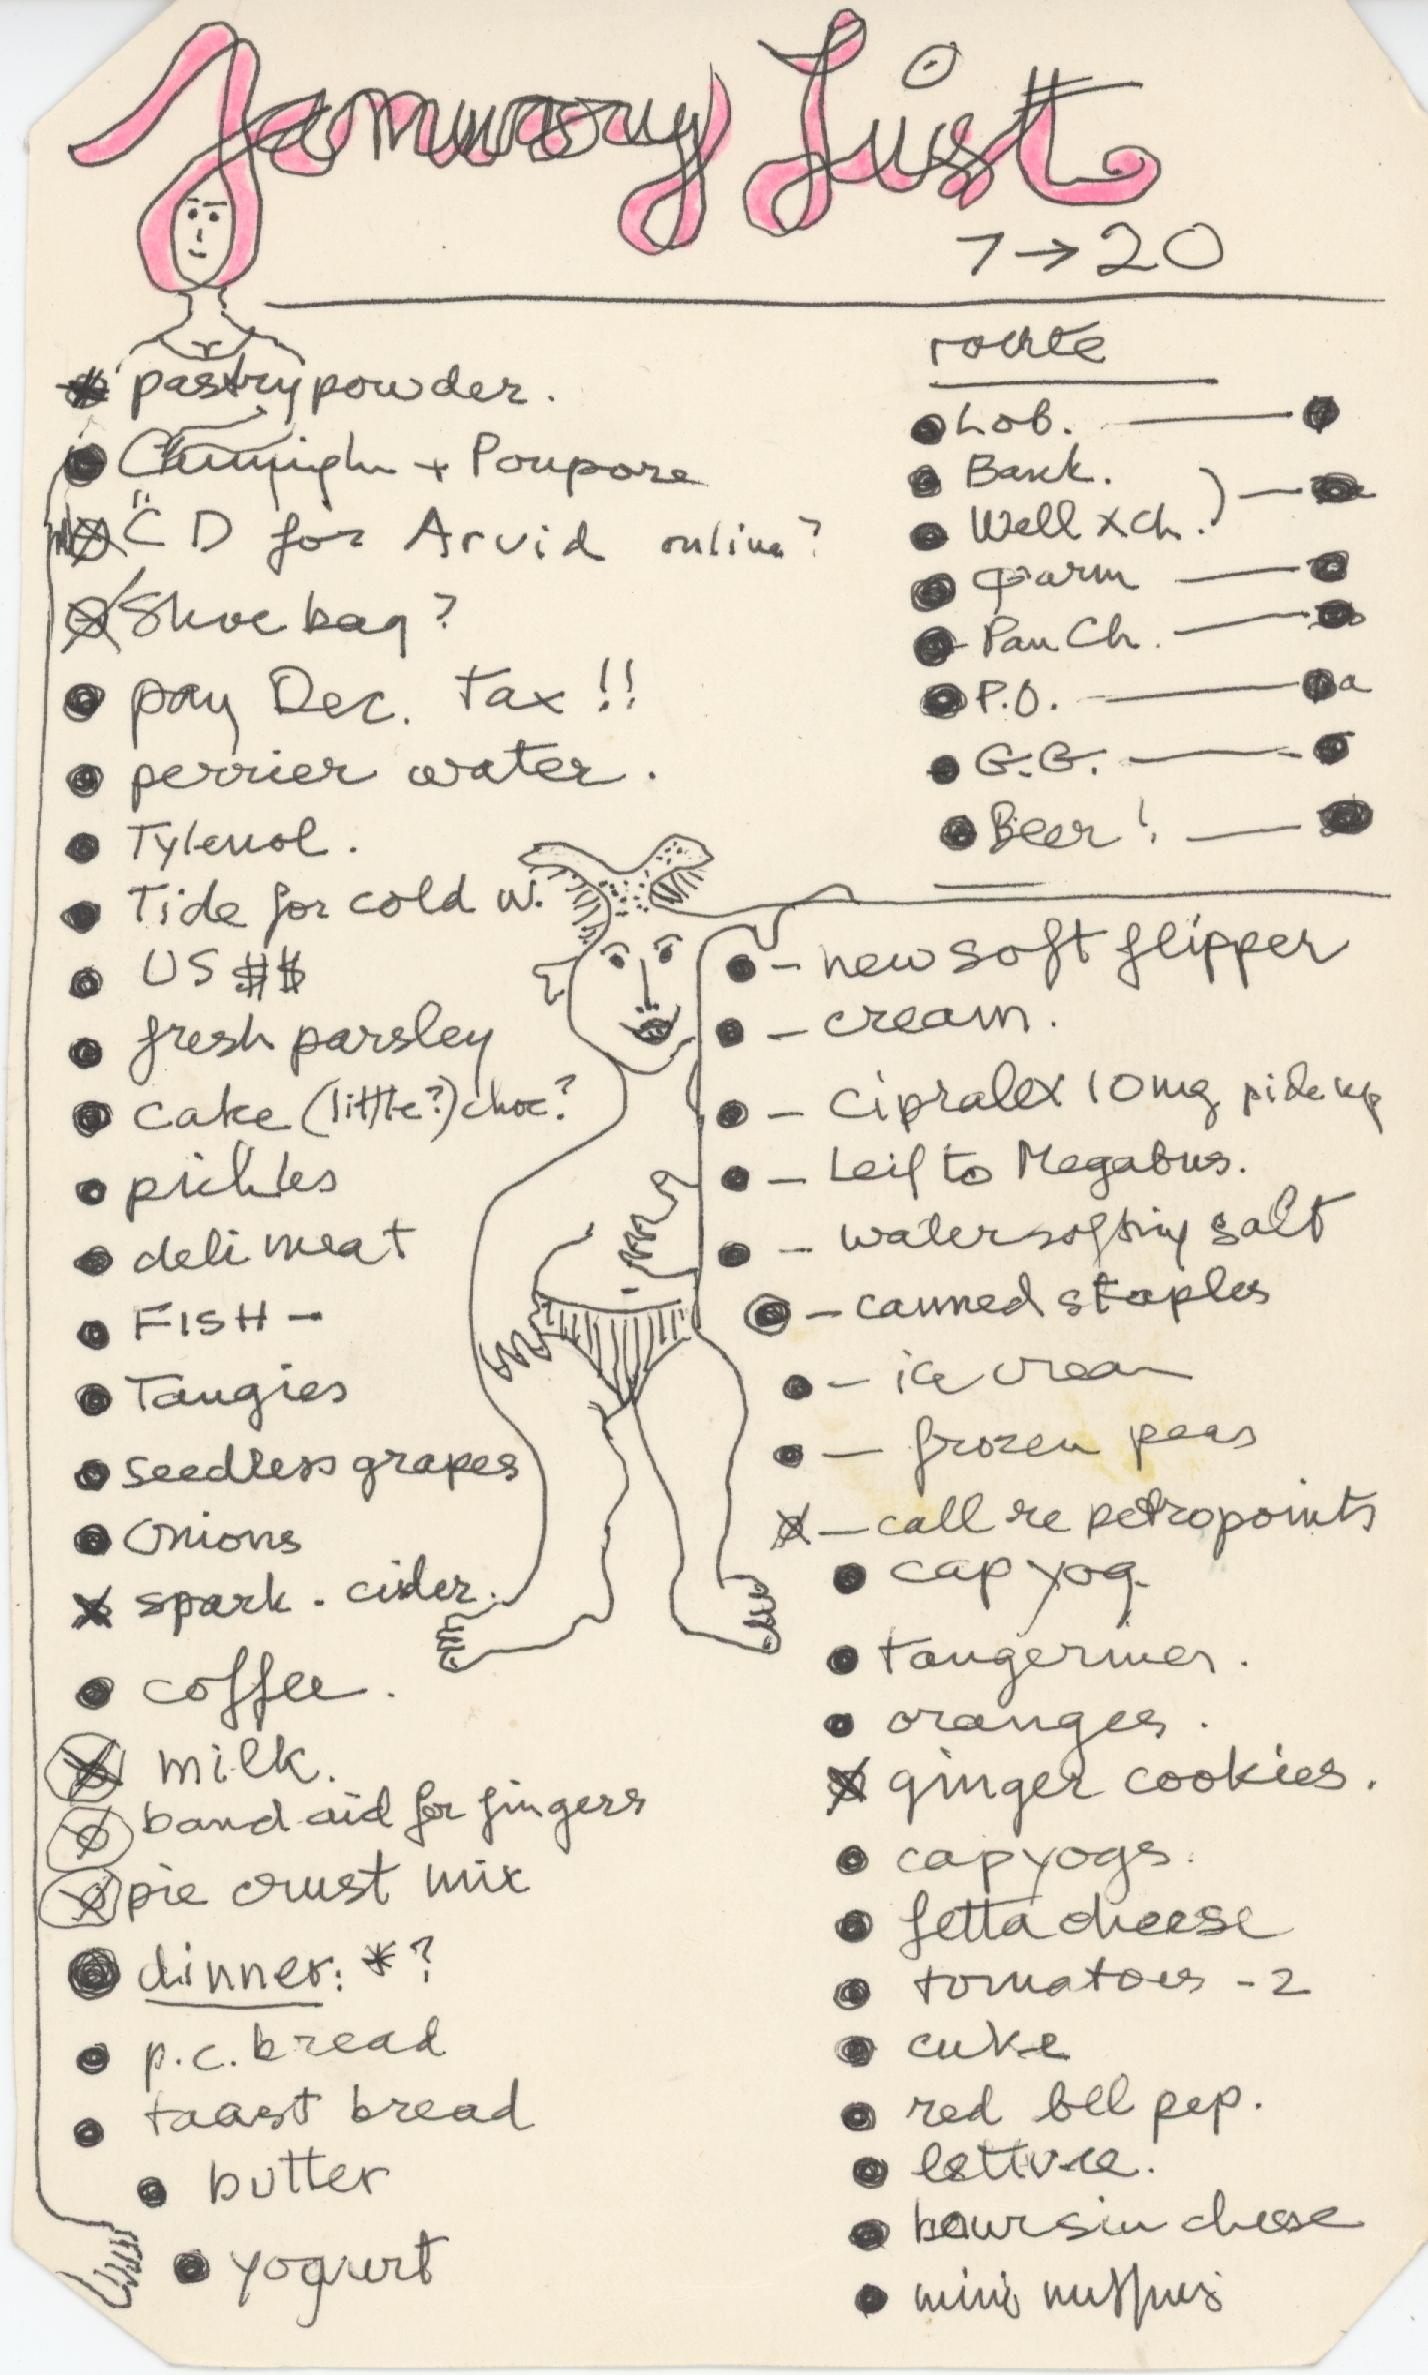 January List
7 → 20
pastry powder.
+ Poupore
CD for Arvid online?
Shoe bag?
pay Dec. tax!!
perrier water.
Tylenol.
Tide for cold w.
US $$
fresh parsley
cake (little?) choc?
pickles
deli meat
FISH -
Tangies
seedless grapes
Onions
spark. cider.
coffee.
milk.
band-aid for fingers
pie crust mix
dinner: *?
p.c. bread
taast bread
butter
yogurt
route
Lob.
Bank.
Well x ch.
Farm
Pan Ch.
P.O.
G.G.
Beer!
- new soft flipper
- cream.
- cipralex 10mg pick up
- Leif to Megabus.
- water softing salt
- canned staples
- ice cream
- frozen peas
- call re petropoints
cap yog.
tangerines.
oranges.
ginger cookies.
cap yogs.
fetta cheese
tomatoes - 2
cuke
red bell pep.
lettuce.
boursin cheese
mini muffins